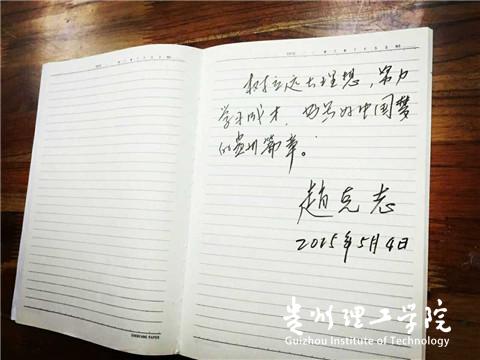 树立远大理想，努力
学习成才，书写好中国梦
的贵州篇章。
赵克志
2015年5月4日
贵州理工学院
Guizhou Institute of Technology